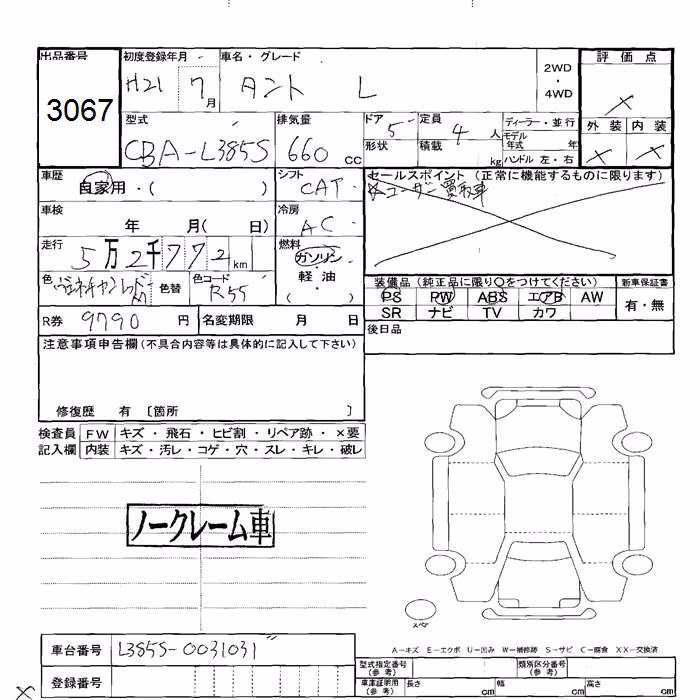 出品番号 初度登録年月 車名・グレード 2WD・4WD 評価点
3067 H21 7月 タント L ×
型式 排気量 ドア 5 定員 4人 ディーラー・並行 外装 内装
CBA-L385S 660cc 形状 積載 kg モデル年式 年 × ×
ハンドル 左・右
車歴 シフト セールスポイント(正常に機能するものに限ります)
自家用・( ) CAT ☆ユーザー買取車
車検 冷房
年 月( 日) AC
走行 燃料
5万2千772km ガソリン・軽・油( )
色 色替 色コード R55
装備品(純正品に限り○をつけてください) 新車保証書
PS PW ABS エアB AW 有・無
SR ナビ TV カワ
R券 9790円 名変期限 月 日 後日品
注意事項申告欄(不具合内容等は具体的に記入して下さい)
修復歴 有 〔箇所 〕
検査員 FW キズ・飛石・ヒビ割・リペア跡・×要
記入欄 内装 キズ・汚レ・コゲ・穴・スレ・キレ・破レ
ノークレーム車
スペア
A-キズ E-エクボ U-凹み W-補修跡 S-サビ C-腐食 XX-交換済
車台番号 L385S-0031031
型式指定番号(参考) 類別区分番号(参考)
登録番号 車庫証明用(参考) 長さ cm 幅 cm 高さ cm
×